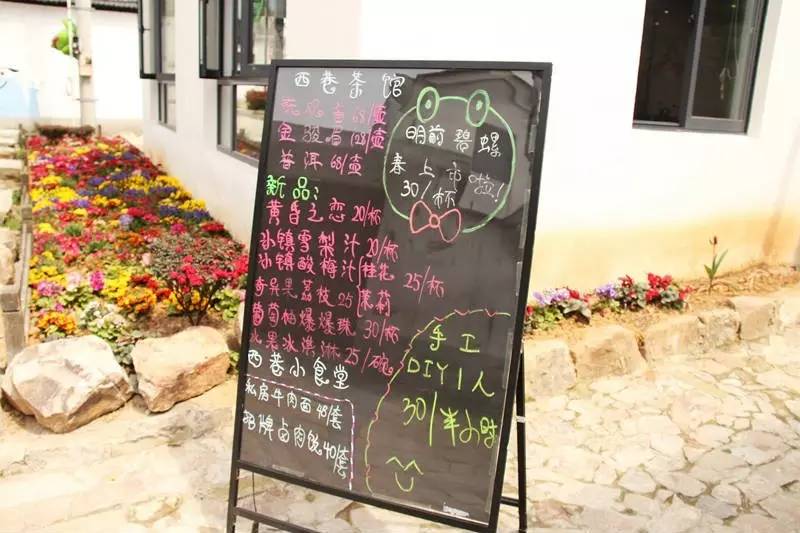 西巷茶馆
凤凰香 68/壶
金骏眉 128/壶
普洱 68/壶
新品:
黄昏之恋 20/杯
小镇雪梨汁 20/杯
小镇酸梅汁 桂花 25/杯
奇异果荔枝 25 茉莉
葡萄柚爆爆珠 30/杯
水果冰淇淋 25/碗
西巷小食堂
私房牛肉面 48/套
招牌卤肉饭 40/套
明前碧螺
春上市啦!
30/杯
手工
DIY 1人
30/半小时